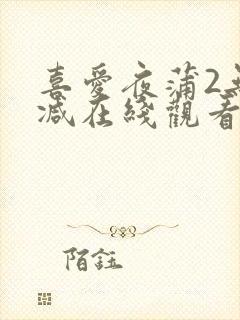 喜愛夜蒲2無
減在綫觀看
陌鈺